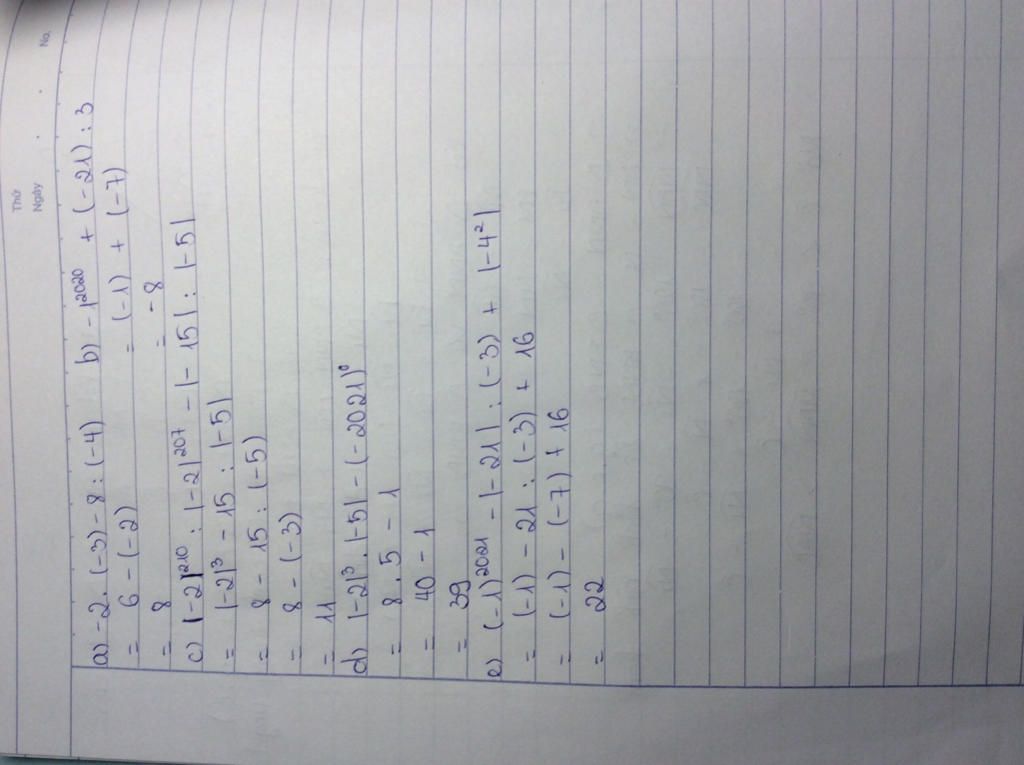 Thứ
Ngày . . No.
a) -2. (-3) - 8 : (-4)   b) -1²⁰²⁰ + (-21) : 3
= 6 - (-2)   = (-1) + (-7)
= 8   = -8
c) |-2|²¹⁰ : |-2|²⁰⁷ - |-15| : |-5|
= |-2|³ - 15 : |-5|
= 8 - 15 : (-5)
= 8 - (-3)
= 11
d) |-2|³. |-5| - (-2021)⁰
= 8 . 5 - 1
= 40 - 1
= 39
e) (-1)²⁰²¹ - |-21| : (-3) + |-4²|
= (-1) - 21 : (-3) + 16
= (-1) - (-7) + 16
= 22